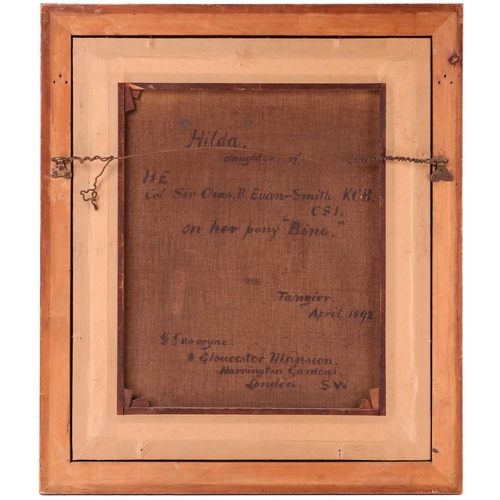 "Hilda."
daughter of
HE
Col Sir Chas. B. Euan-Smith KCB.
CSI.
on her pony "Bino."
Tangier.
April. 1892
G Gascoyne.
8 Gloucester Mansion
Harrington Gardens.
London. SW